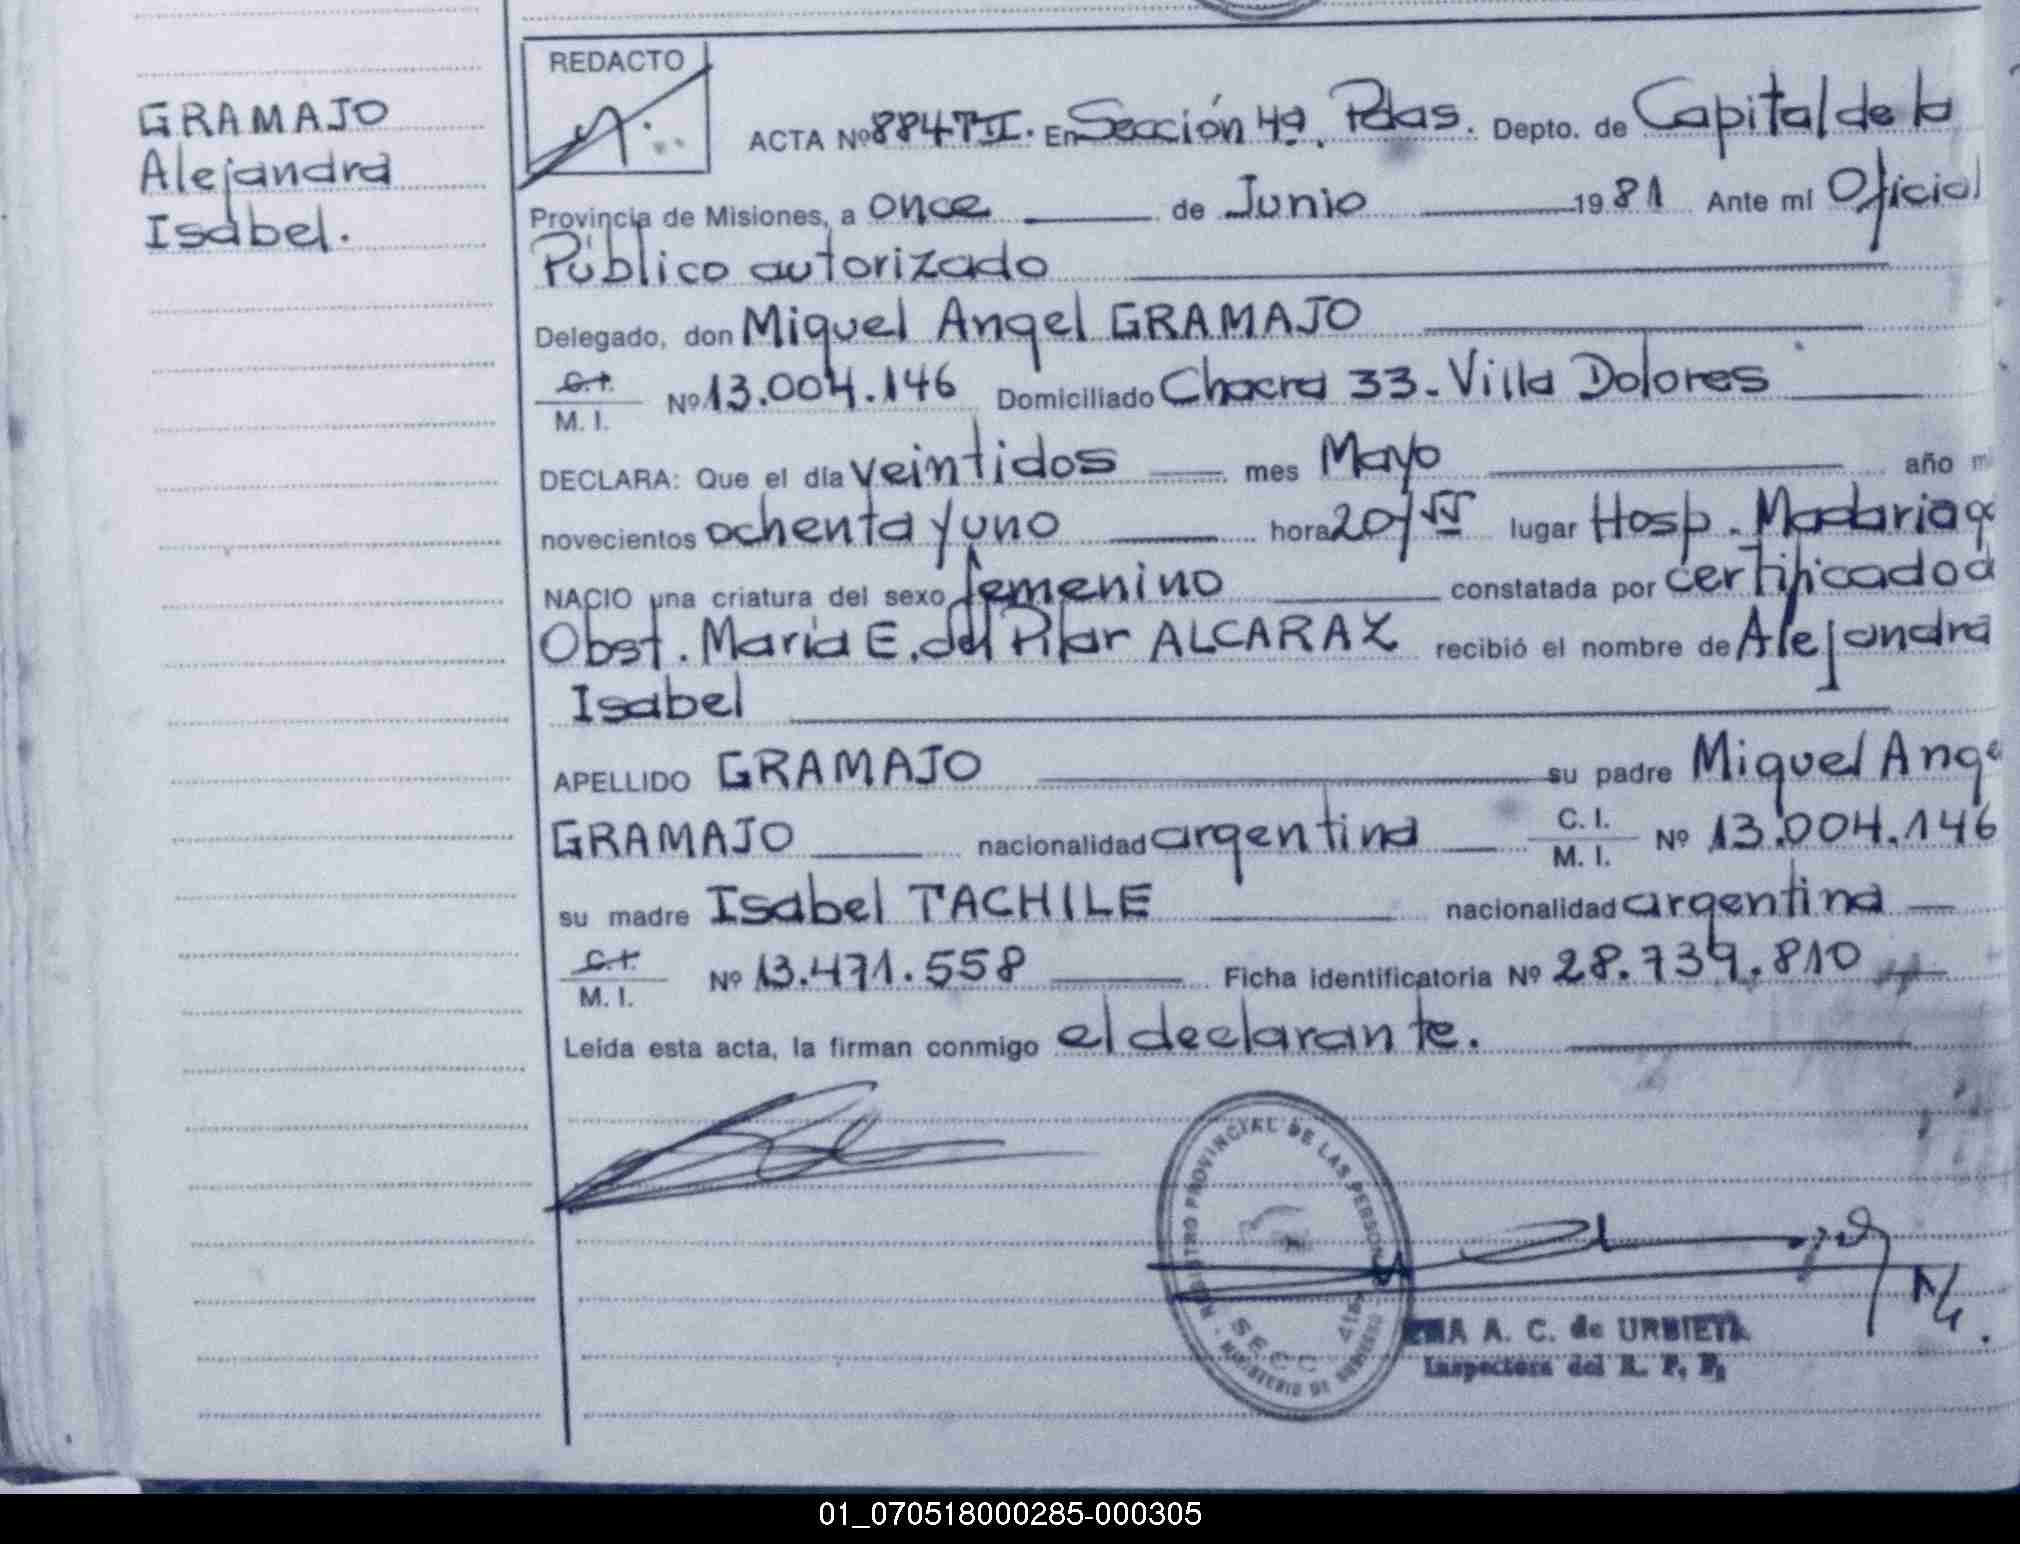 GRAMAJO
Alejandra
Isabel.
REDACTO
ACTA Nº 884 TII. En Sección 4ª. Pdas. Depto. de Capital de la
Provincia de Misiones, a once de Junio 1981 Ante mí Oficial
Público autorizado
Delegado, don Miguel Angel GRAMAJO
C.I.
M. I. Nº 13.004.146 Domiciliado Chacra 33 - Villa Dolores
DECLARA: Que el día veintidos mes Mayo año m
novecientos ochenta y uno hora 20/55 lugar Hosp. Madariaga
NACIO una criatura del sexo femenino constatada por certificado d
Obst. Maria E. del Pilar ALCARAZ recibió el nombre de Alejandra
Isabel
APELLIDO GRAMAJO su padre Miguel Ange
GRAMAJO nacionalidad argentina C. I.
M. I. Nº 13.004.146
su madre Isabel TACHILE nacionalidad argentina
C.I.
M. I. Nº 13.471.558 Ficha identificatoria Nº 28.739.810
Leída esta acta, la firman conmigo el declarante.
REGISTRO PROVINCIAL DE LAS PERSONAS
SECC. 4ta
MINISTERIO DE GOBIERNO
A. C. de URBIETA
Inspectora del R. P. P.
01_070518000285-000305